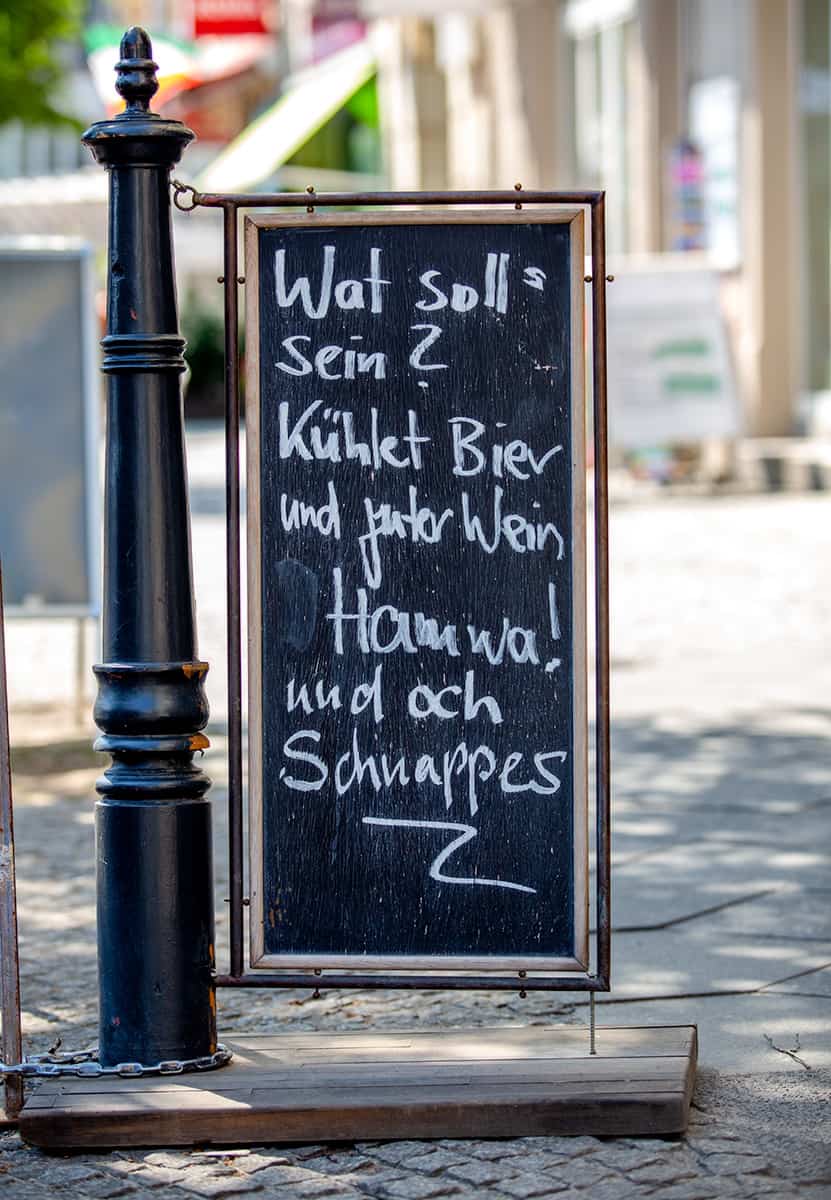 Wat soll's
sein?
Kühlet Bier
und juter Wein
Hamwa!
und och
Schnappes